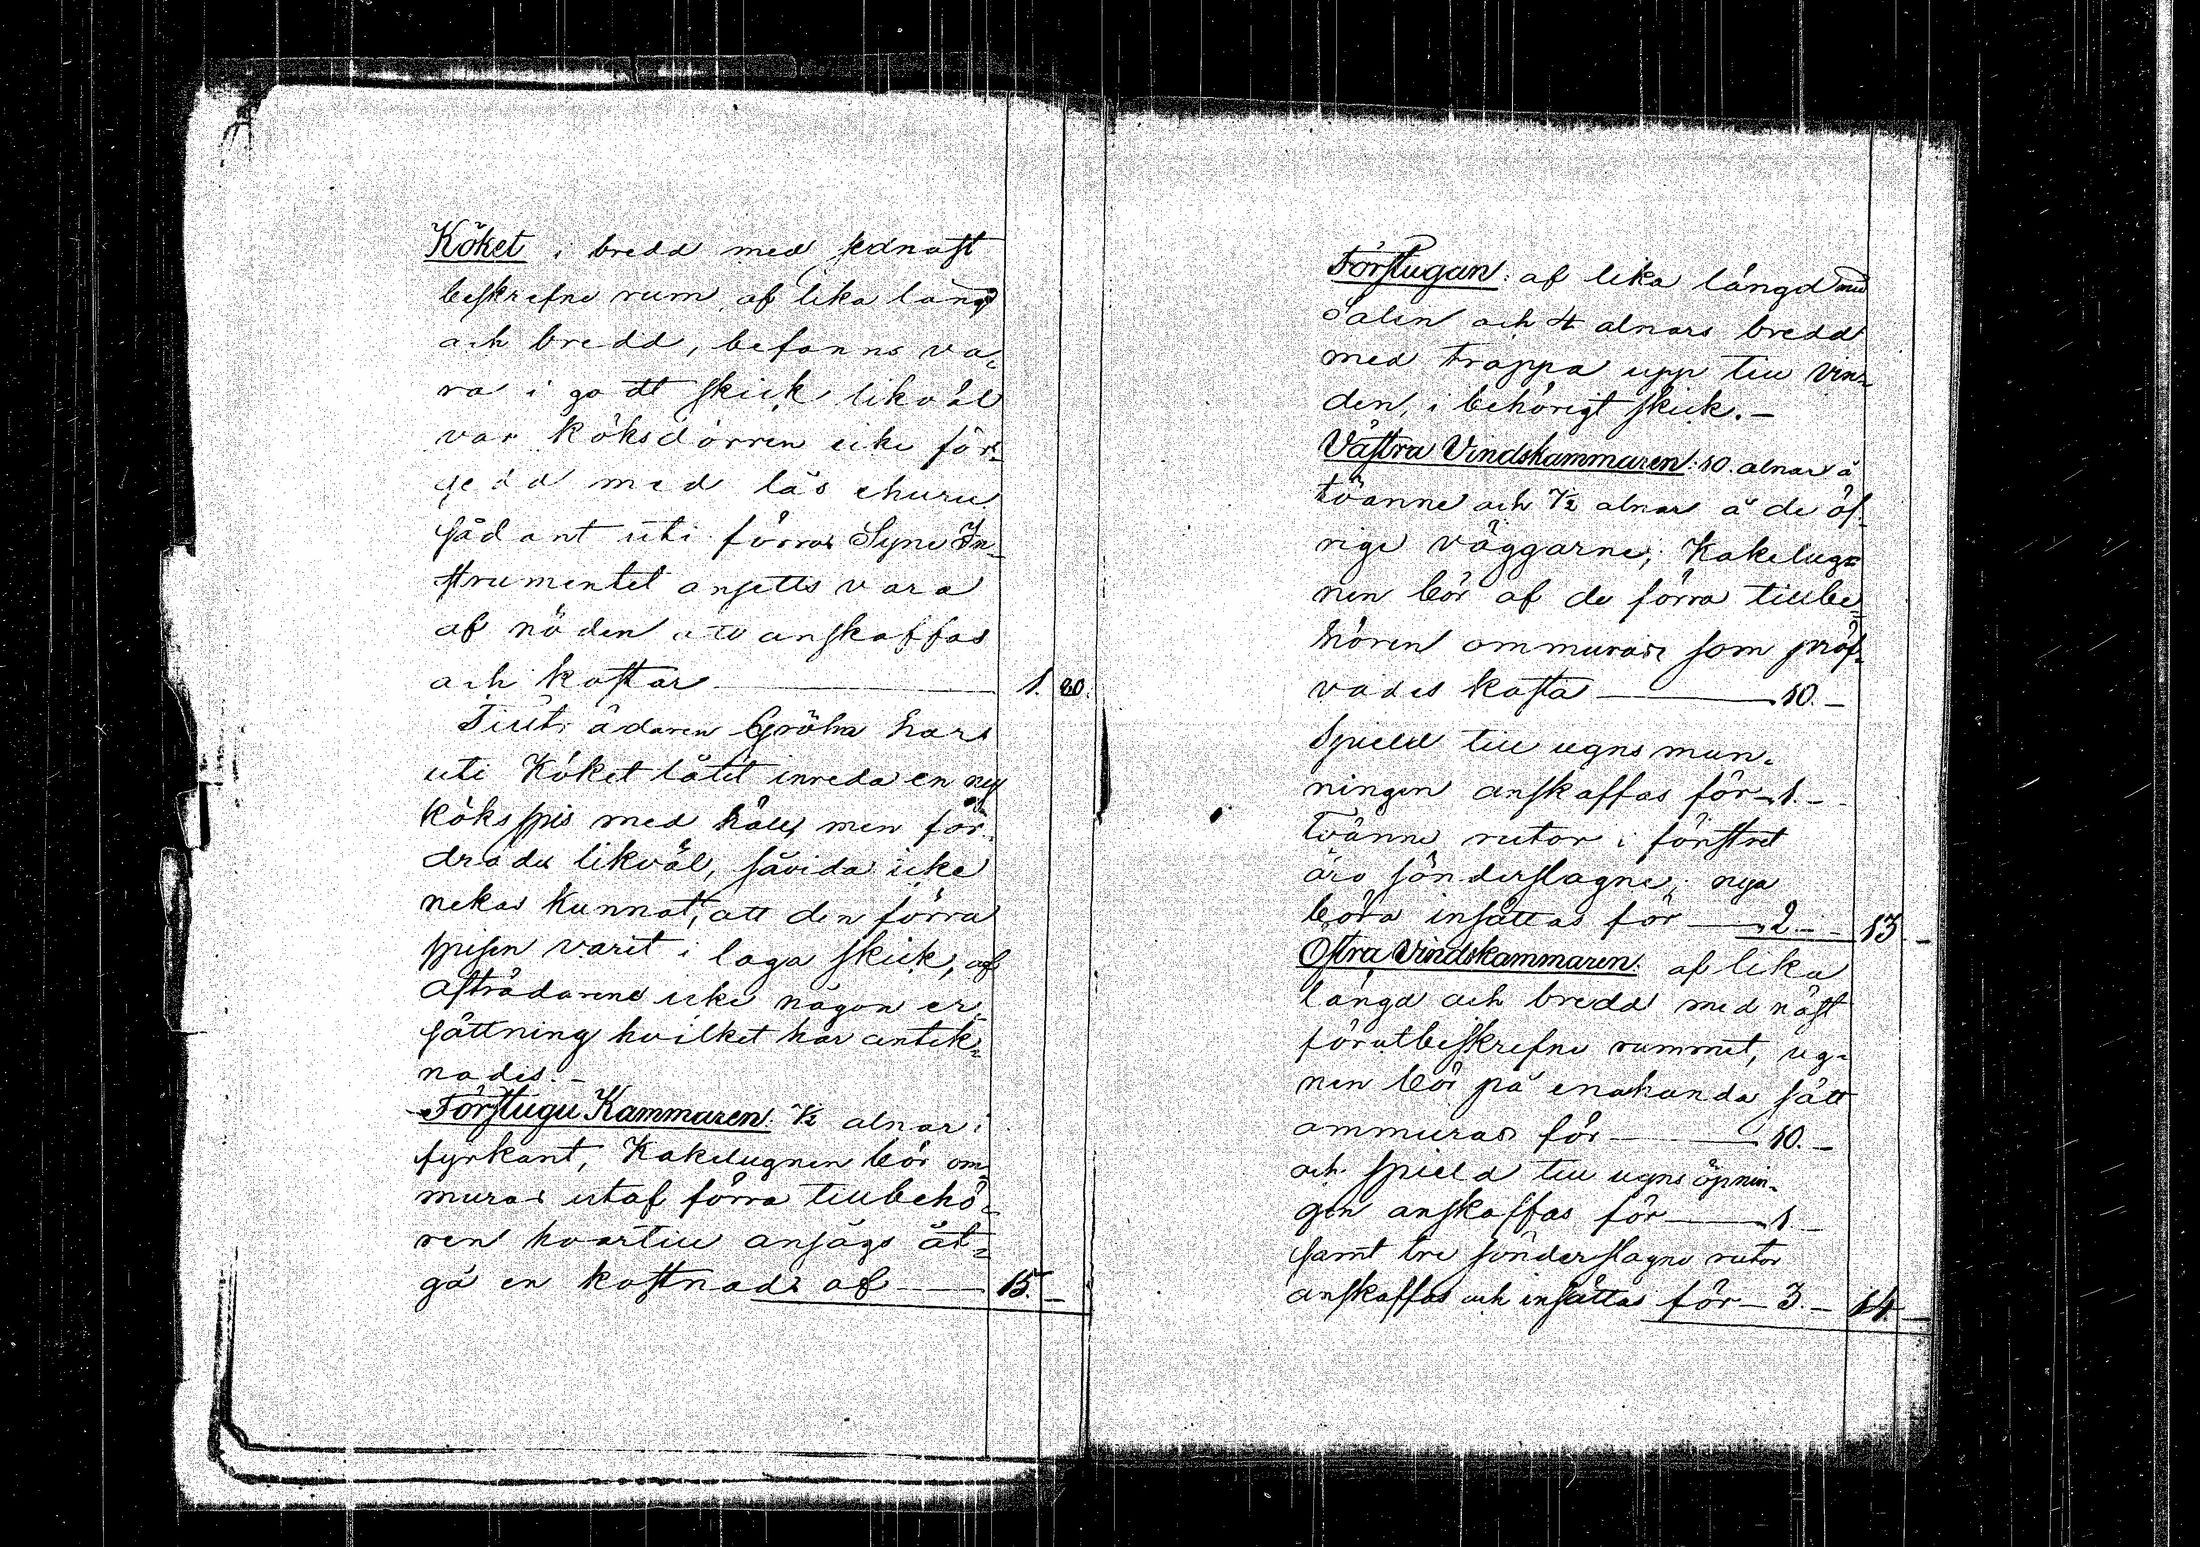 Köket i bredd med sednast
beskrefne rum af lika längd
och bredd, befanns va-
ra i godt skick likväl
var köksdörren icke för-
sedd med lås ehuru
sådant uti förra Syne In-
strumentet ansetts vara
af nöden att anskaffas
och kostar 1. 80.
Tillträdaren Gröhn har
uti Köket låtit inreda en ny
köksspis med häll, men for-
drade likväl, såvida icke
nekas kunnat, att den förra
spisen varit i laga skick, af
afträdarene icke någon er-
sättning hvilket här antek-
nades.-
Förstugu Kammaren: 7½ alnar i
fyrkant, Kakelugnen bör om-
muras utaf förra tillbehö-
ren hvartill ansågs åt-
gå en kostnad af 15. -
Förstugan: af lika längd med
Salen och 4 alnars bredd
med trappa upp till vin-
den, i behörigt skick. -
Västra Vindskammaren: 10. alnar å
tvänne och 7½ alnar å de öf-
rige väggarne; Kakelug-
nen bör af de förra tillbe-
hören ommuras som pröf-
vades kosta 10. -
Spjeld till ugns mun-
ningen anskaffas för 1. -
Tvänne rutor i fönstret
äro sönderslagne; nya
böra insättas för 2. - 13 -
Östra Vindskammaren: af lika
längd och bredd med näst
förutbeskrefne rummet, ug-
nen bör på enahanda sätt
ommuras för 10. -
och spjeld till ugns öpnin-
gen anskaffas för 1 -
samt tre sönderslagne rutor
anskaffas och insättas för 3. - 14. -